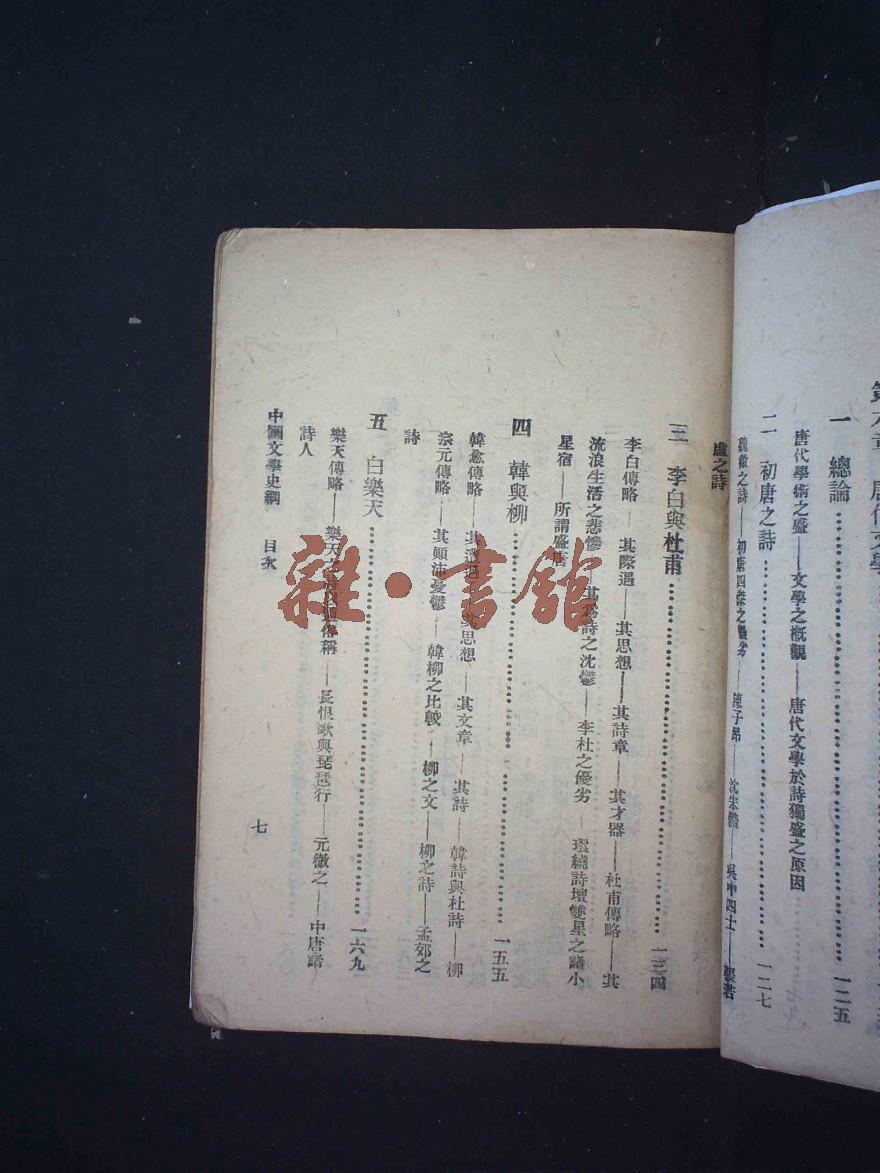 一 總論……一二五
唐代學術之盛——文學之概觀——唐代文學於詩獨盛之原因
二 初唐之詩……一二七
魏徵之詩——初唐四傑之優劣——陳子昂——沈宋體——吳中四士——張若
虛之詩
三 李白與杜甫……一三四
李白傳略——其際遇——其思想——其詩章——其才器——杜甫傳略——其
流浪生活之悲慘——其為詩之沈鬱——李杜之優劣——環繞詩壇雙星之諸小
星宿——所謂盛唐
四 韓與柳……一五五
韓愈傳略——其遭遇——其思想——其文章——其詩——韓詩與杜詩——柳
宗元傳略——其顛沛憂鬱——韓柳之比較——柳之文——柳之詩——孟郊之
詩
五 白樂天……一六九
樂天傳略——樂天之詩以通俗稱——長恨歌與琵琶行——元微之——中唐諸
詩人
中國文學史綱 目次
七
雜·書館